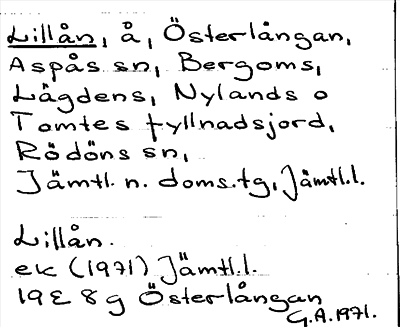 Lillån, å, Österlångan,
Aspås sn, Bergoms,
Lägdens, Nylands o
Tomtes fyllnadsjord,
Rödöns sn,
Jämtl. n. doms.tg, Jämtl.l.
Lillån.
ek (1971) Jämtl.l.
19E 8g Österlångan
G.A. 1971.